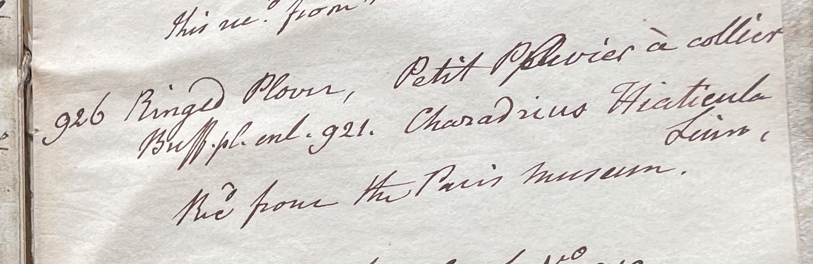 this rec.d from
926 Ringed Plover, Petit Pluvier à collier
Buff. pl. enl. 921. Charadrius Hiaticula
Linn,
Rec.d from the Paris museum.